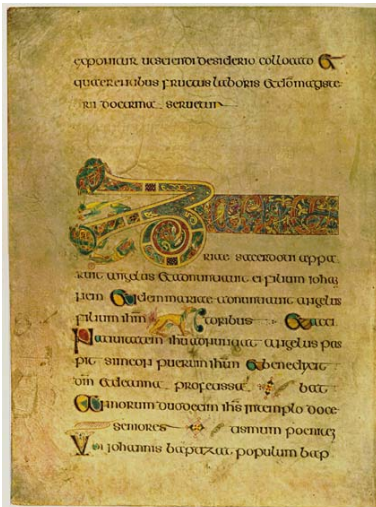 exponitur ut sciendi desiderio collocato &
quaerentibus fructus laboris & dō magiste
rii doctrina seruetur
Z riae sacerdoti appa
ruit angelus & adnuntiauit ei filium iohan
nem Et idem mariae adnuntiauit angelus
filium ihm toribus Et acci
Natiuitatem ihu adnuntiat angelus pas
pit simeon puerum ihm Et benedixit
dm et de anna professa bat
Annorum duodecim ihs in templo doce
seniores tismum poeniten
Ubi iohannis baptizat populum bap